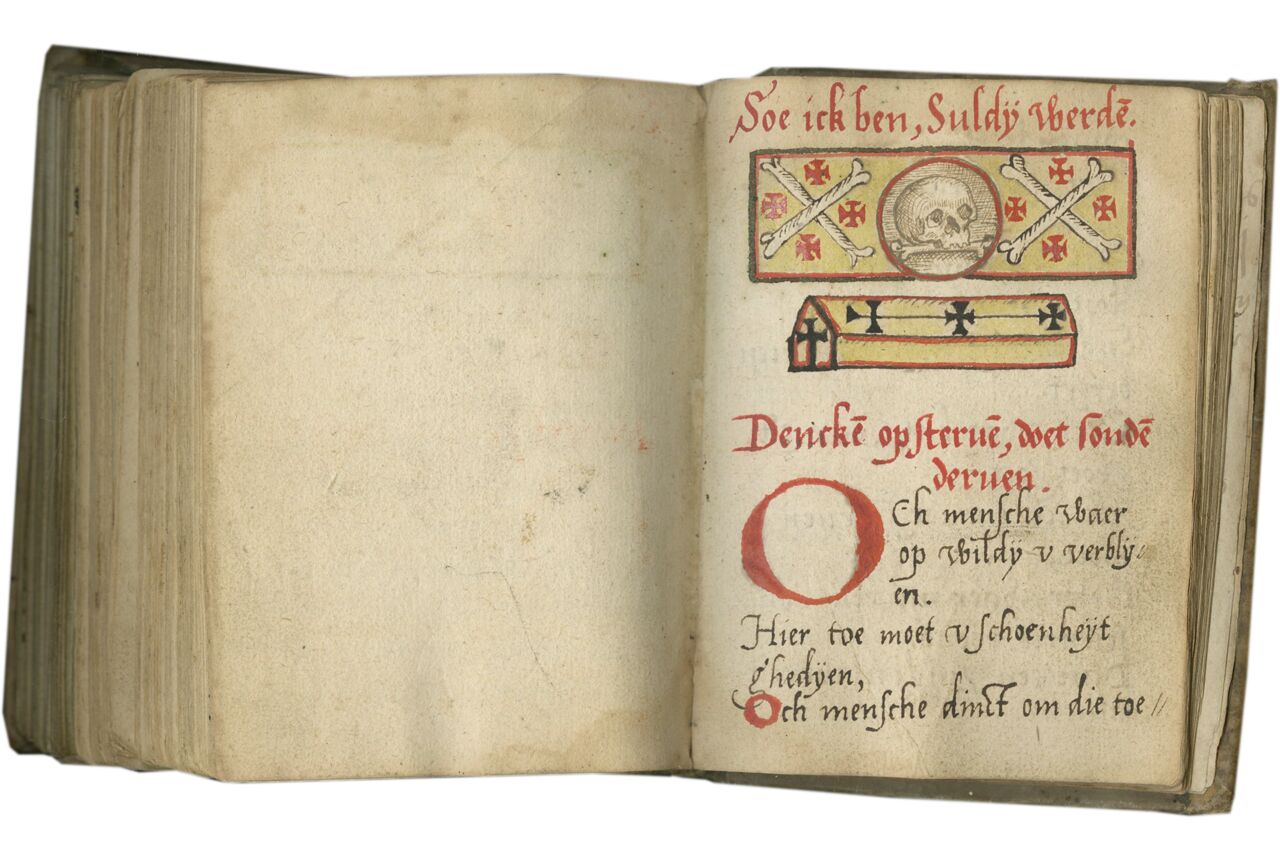 Soe ick ben, Suldÿ werdē.
Denckē opsteruē, doet sondē
deruen.
OCh mensche waer
op wildÿ v verblÿ⸗
en.
Hier toe moet v schoenheÿt
ghedÿen,
Och mensche dinct om die toe //